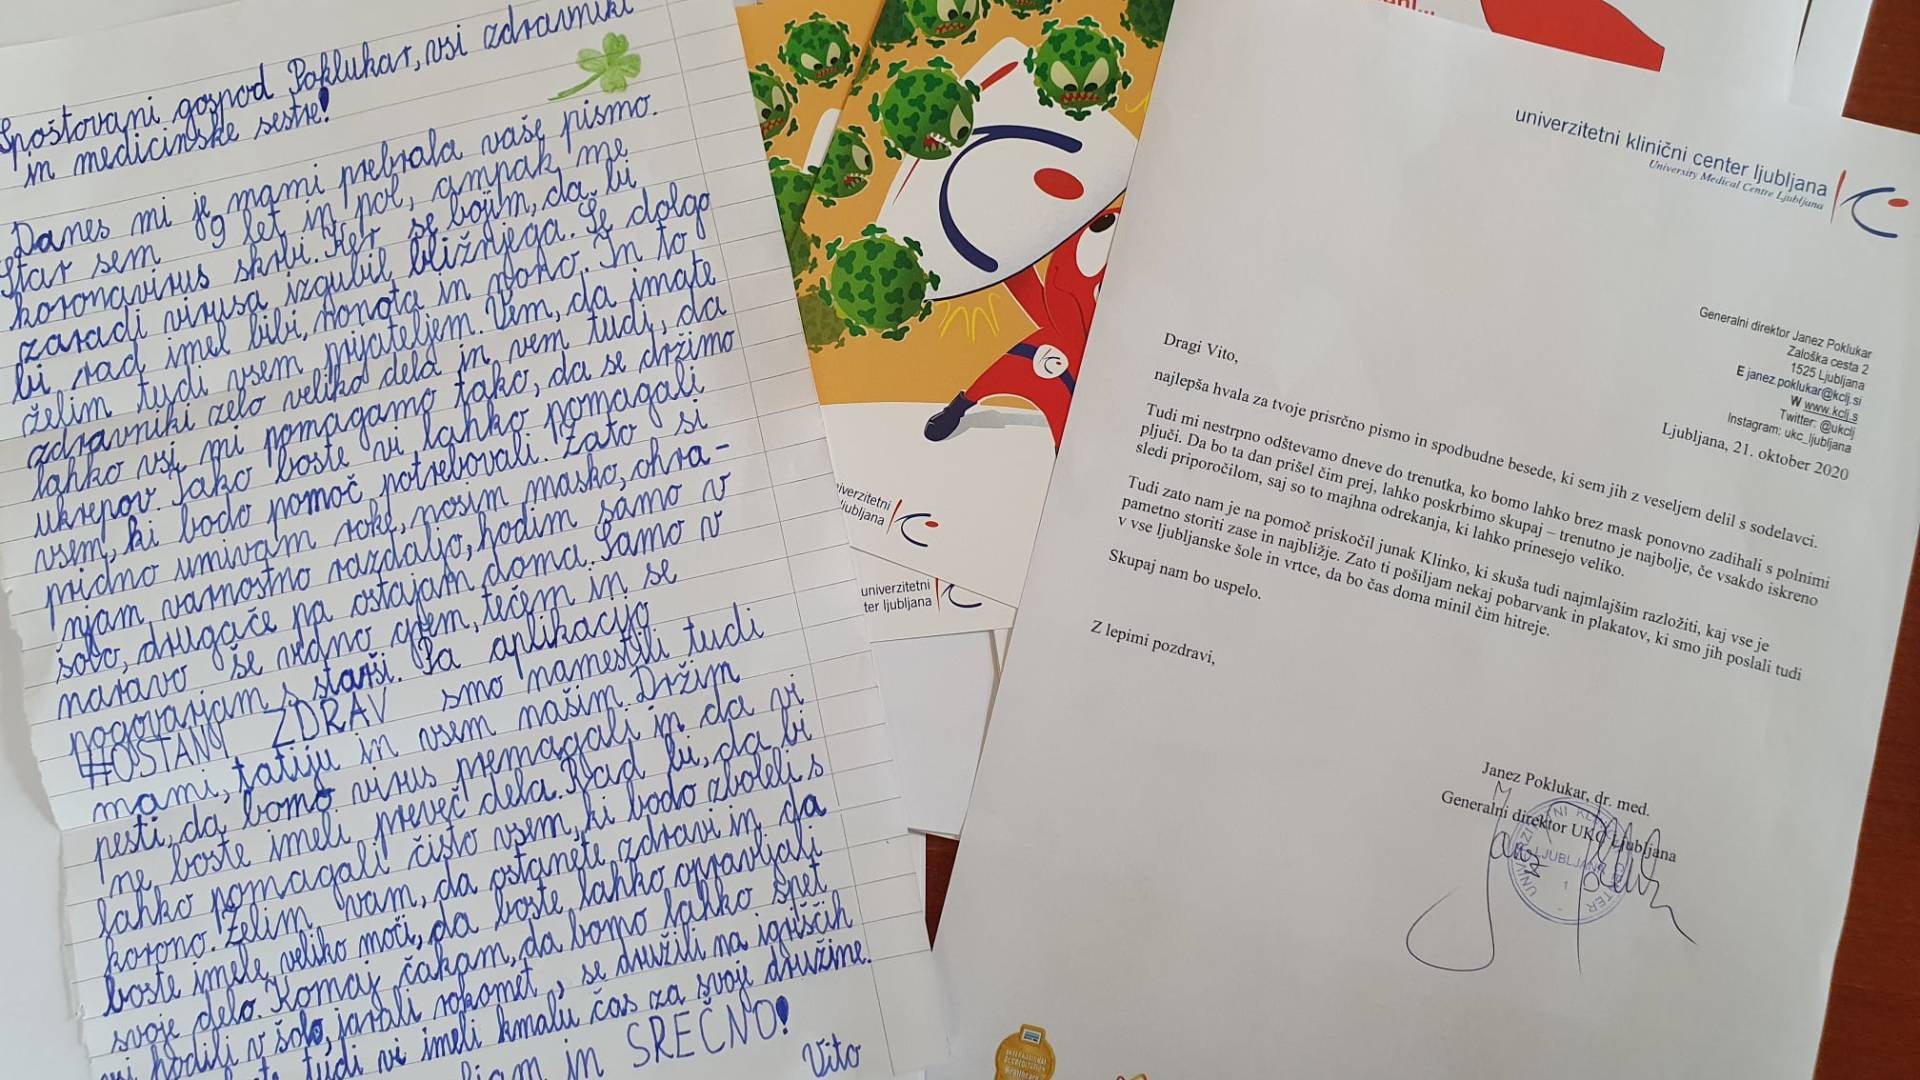 Spoštovani gospod Poklukar, vsi zdravniki
in medicinske sestre!
Danes mi je mami prebrala vaše pismo.
Star sem 9 let in pol, ampak me
koronavirus skrbi. Ker se bojim, da bi
zaradi virusa izgubil bližnjega. Še dolgo
bi rad imel bibi, nonota in nono. In to
želim tudi vsem prijateljem. Vem, da imate
zdravniki zelo veliko dela in vem tudi, da
lahko vsi mi pomagamo tako, da se držimo
ukrepov. Tako boste vi lahko pomagali
vsem, ki bodo pomoč potrebovali. Zato si
pridno umivam roke, nosim masko, ohra-
njam varnostno razdaljo, hodim samo v
šolo, drugače pa ostajam doma. Samo v
naravo še vedno grem, tečem in se
pogovarjam s starši. Pa aplikacijo
#OSTANI ZDRAV smo namestili tudi
mami, tatiju in vsem našim. Držim
pesti, da bomo virus premagali in da vi
ne boste imeli preveč dela. Rad bi, da bi
lahko pomagali čisto vsem, ki bodo zboleli s
korono. Želim vam, da ostanete zdravi in da
boste imele veliko moči, da boste lahko opravljali
svoje delo. Komaj čakam, da bomo lahko spet
vsi hodili v šolo, igrali rokomet, se družili na igriščih
tudi vi imeli kmalu čas za svoje družine.
in SREČNO!
Vito
univerzitetni
ljubljana
univerzitetni
ter ljubljana
univerzitetni klinični center ljubljana
University Medical Centre Ljubljana
Generalni direktor Janez Poklukar
Zaloška cesta 2
1525 Ljubljana
E janez.poklukar@kclj.si
W www.kclj.s
Twitter: @ukclj
Instagram: ukc_ljubljana
Ljubljana, 21. oktober 2020
Dragi Vito,
najlepša hvala za tvoje prisrčno pismo in spodbudne besede, ki sem jih z veseljem delil s sodelavci.
Tudi mi nestrpno odštevamo dneve do trenutka, ko bomo lahko brez mask ponovno zadihali s polnimi
pljuči. Da bo ta dan prišel čim prej, lahko poskrbimo skupaj – trenutno je najbolje, če vsakdo iskreno
sledi priporočilom, saj so to majhna odrekanja, ki lahko prinesejo veliko.
Tudi zato nam je na pomoč priskočil junak Klinko, ki skuša tudi najmlajšim razložiti, kaj vse je
pametno storiti zase in najbližje. Zato ti pošiljam nekaj pobarvank in plakatov, ki smo jih poslali tudi
v vse ljubljanske šole in vrtce, da bo čas doma minil čim hitreje.
Skupaj nam bo uspelo.
Z lepimi pozdravi,
Janez Poklukar, dr. med.
Generalni direktor UKC Ljubljana